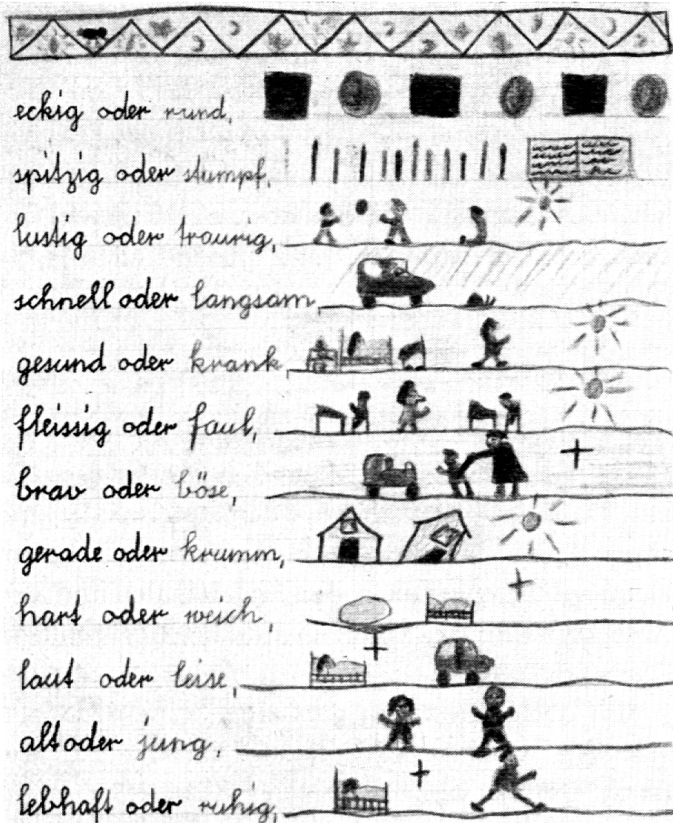 eckig oder rund,
spitzig oder stumpf,
lustig oder traurig,
schnell oder langsam
gesund oder krank,
fleissig oder faul,
brav oder böse,
gerade oder krumm,
hart oder weich,
laut oder leise,
alt oder jung,
lebhaft oder ruhig,